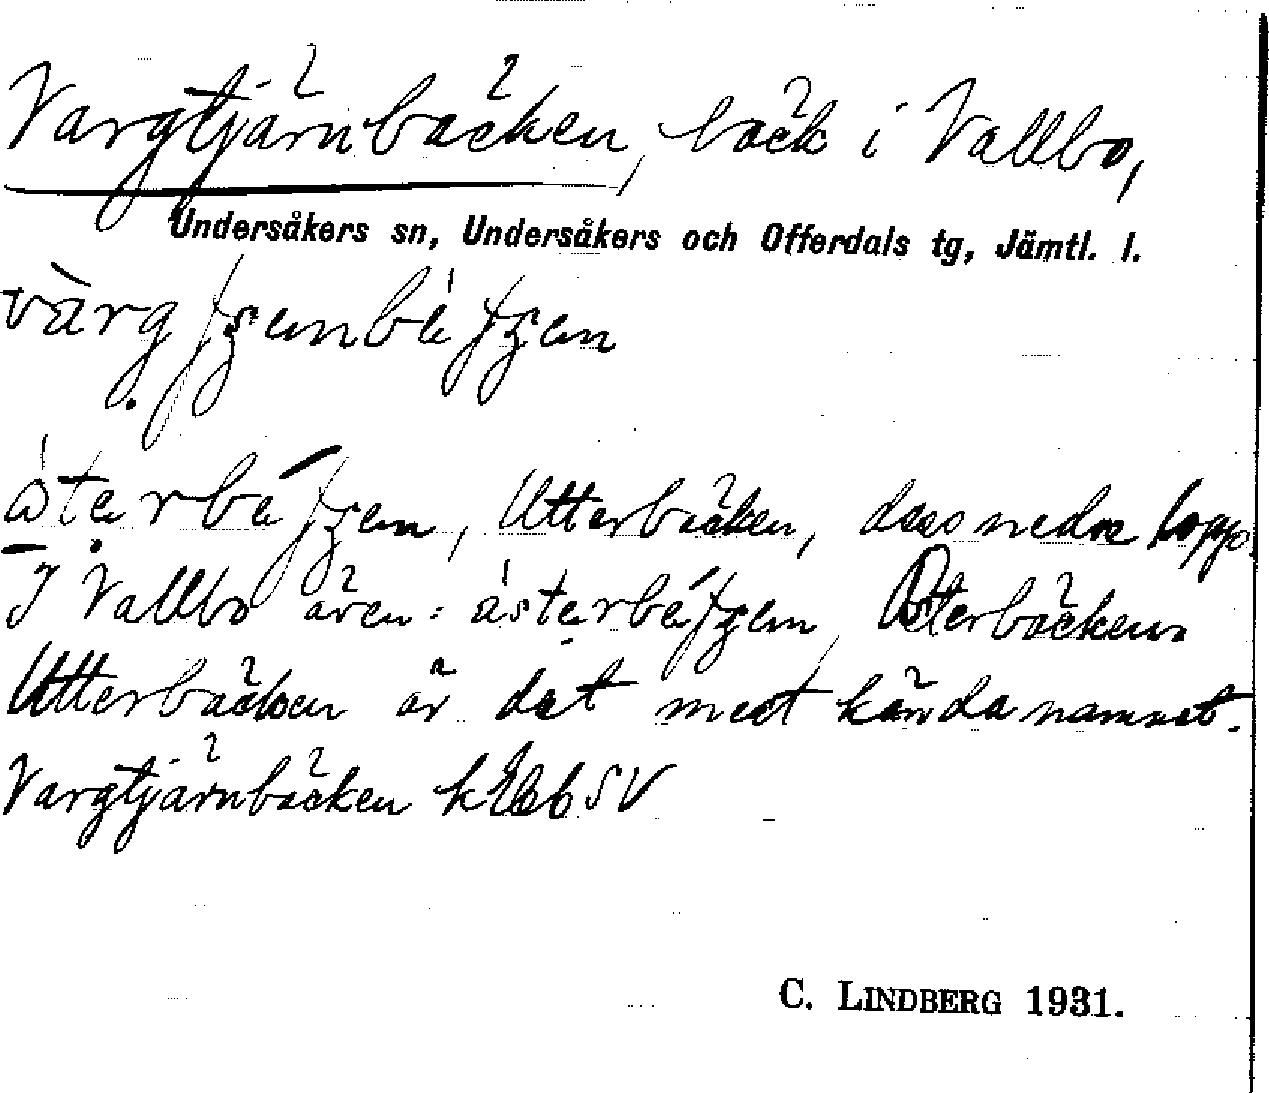 Vargtjärnbäcken, bäck i Vallbo,
Undersåkers sn, Undersåkers och Offerdals tg, Jämtl. l.
Utterbäcken, dess nedre lopp.
I Vallbo även: Osterbäcken.
Utterbäcken är det mest kända namnet.
Vargtjärnbäcken kEbbSV
C. LINDBERG 1931.